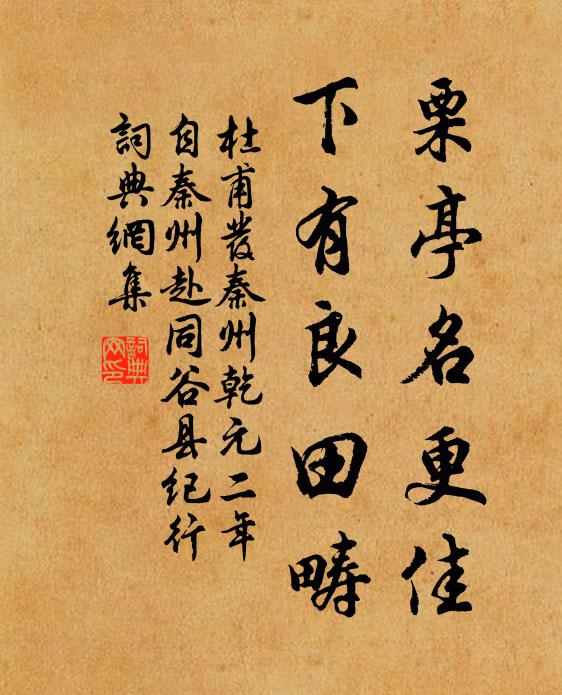 栗亭名更佳
下有良田疇
杜甫發秦州乾元二年
自秦州赴同谷县纪行
詞典網集
詞典網印